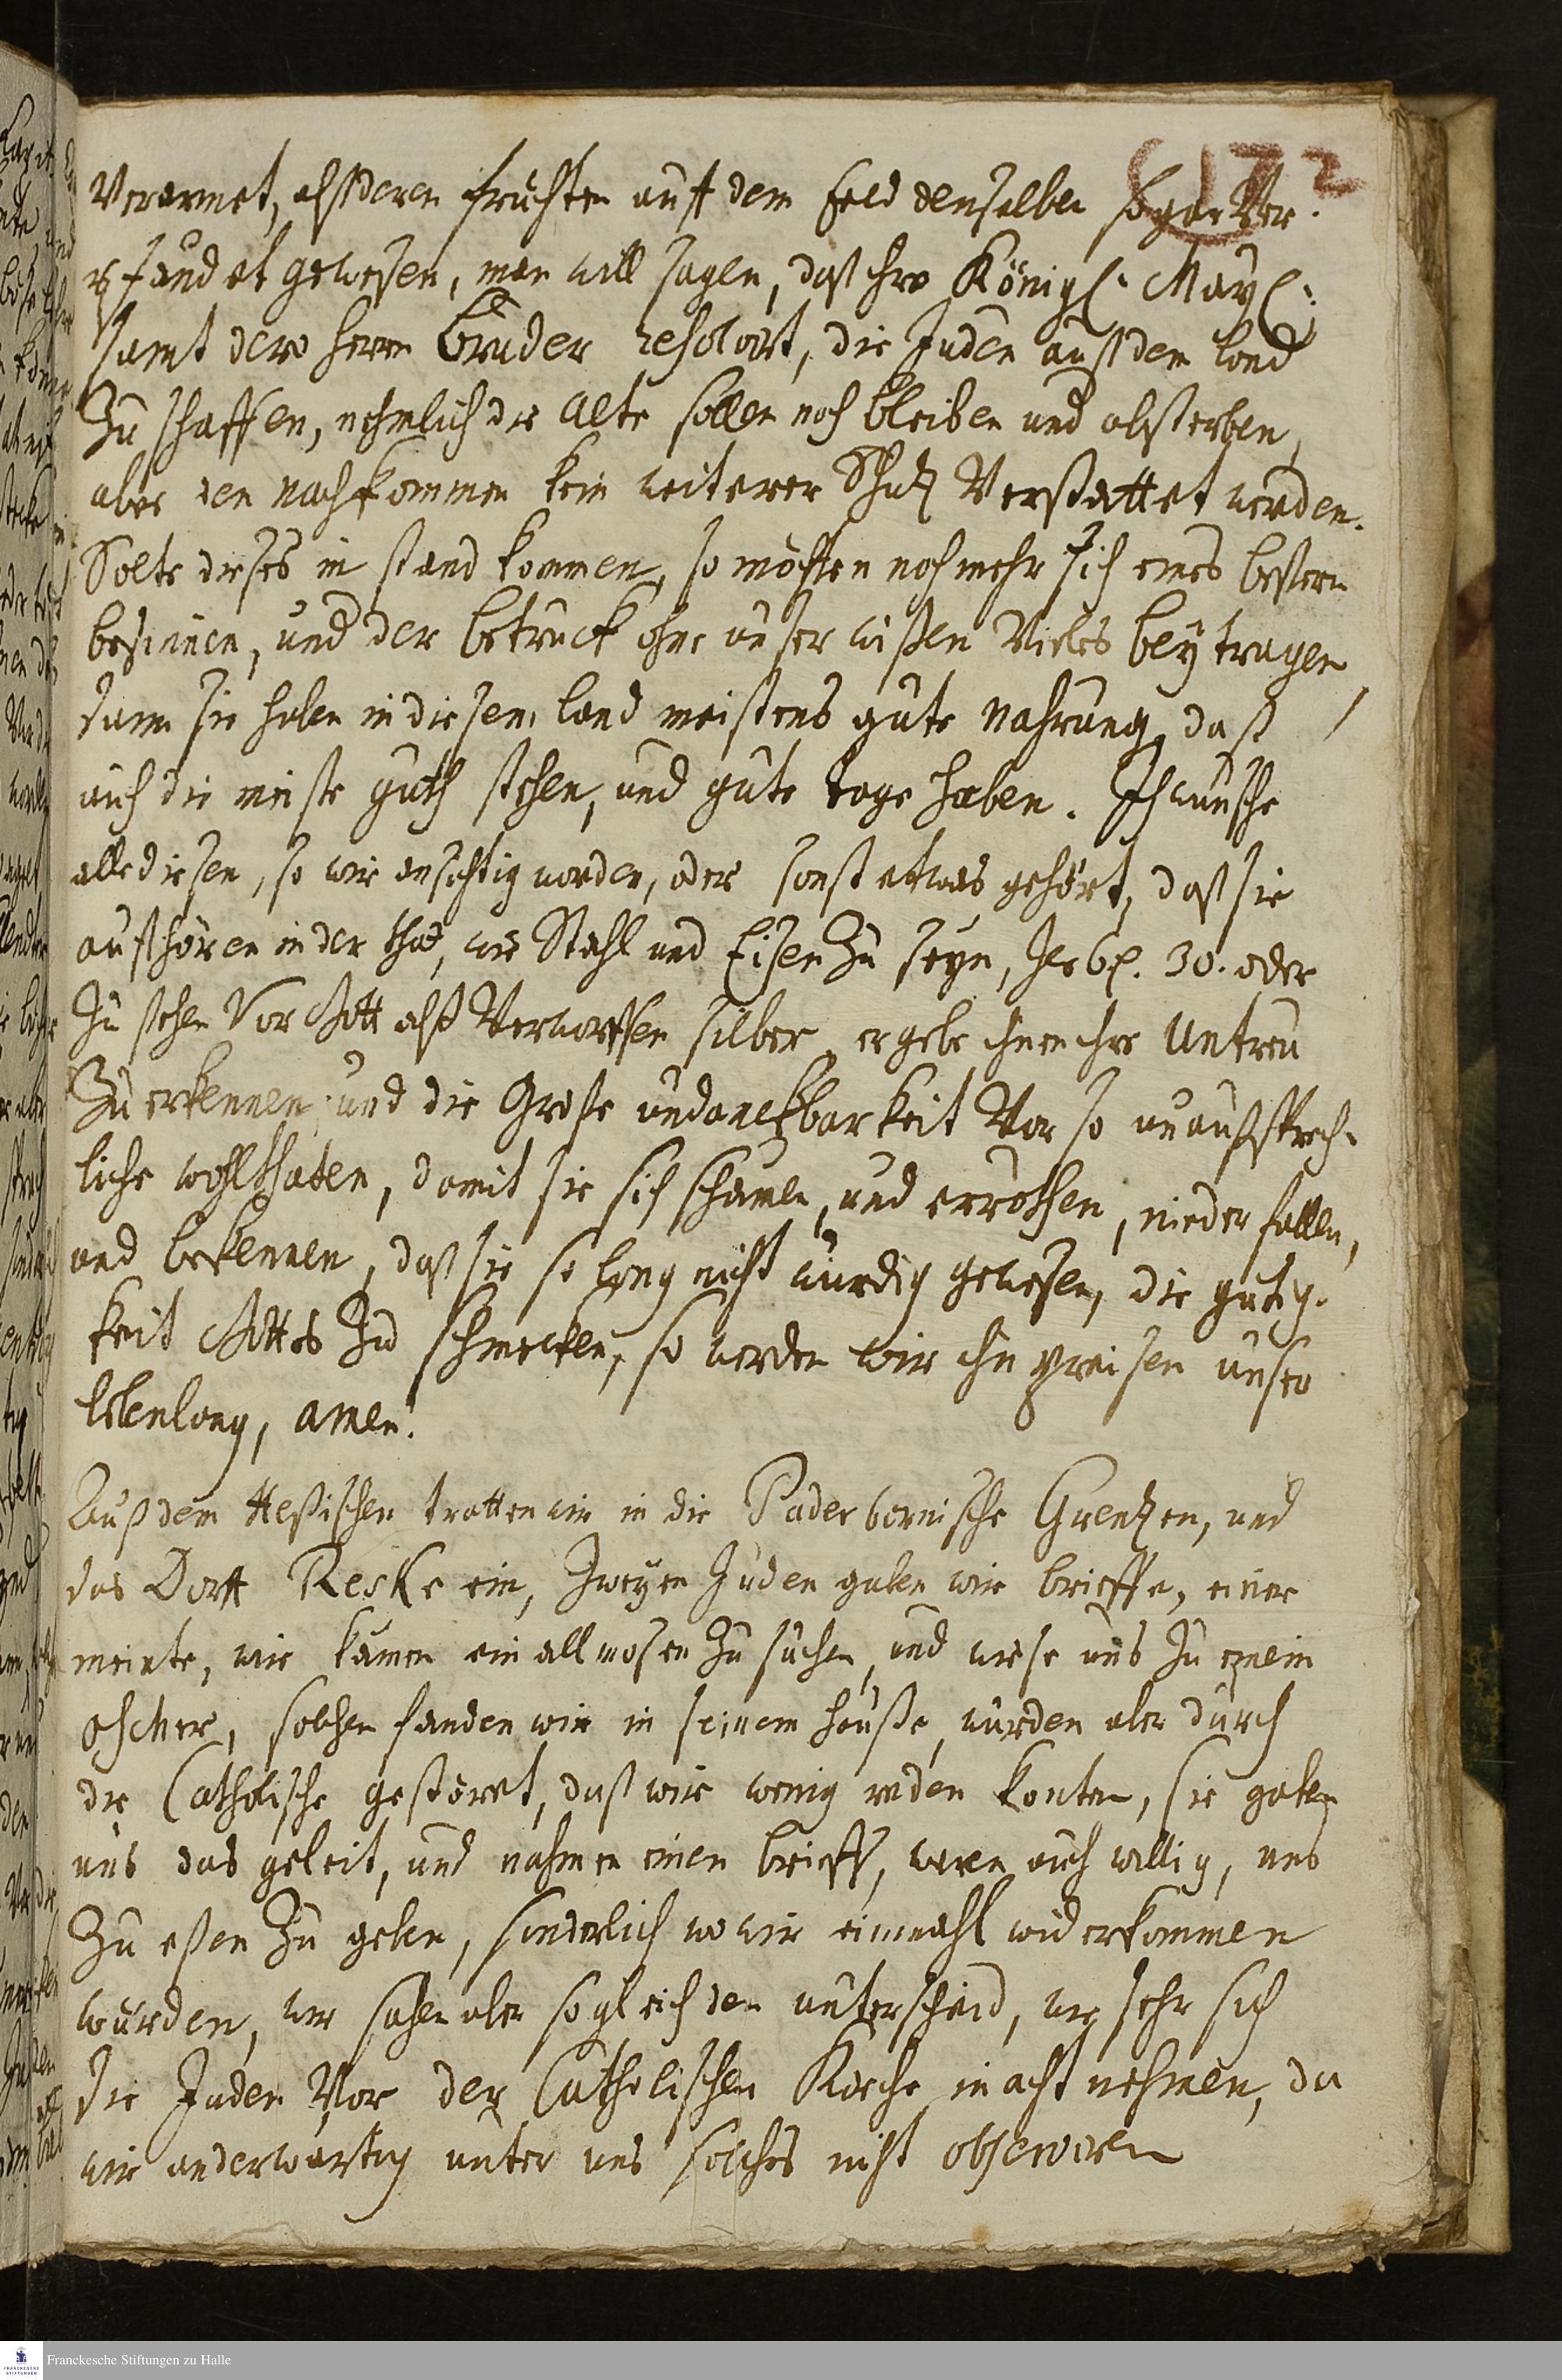 172
Verarmet, alß deren früchten auff dem Feld denselben sogar Ver-
pfändet gewesen, man will sagen, daß ihro Königl. May.
samt dero herrn Bruder resolvirt, die Juden auß dem land
Zu schaffen, nehmlich die Alte sollen noch bleiben und absterben,
aber den nachkommen kein weiterer Schutz Verstattet werden.
Solte dieses in stand kommen, so möchten noch mehr sich eines bessern
besinnen, und der betruck ohne unser wißen Vieles beytragen,
dann sie haben in diesem land meistens gute nahrung, daß
auch die meiste guth stehen, und gute tage haben. Ich wünsche
alle diesen, so wir ansichtig worden, oder sonst etwas gehört, daß sie
aufhören in der that, wie Stahl und Eisen Zu seyn, Jer 6. 30. oder
Zu stehen Vor Gott alß Verworffen silber, er gebe ihnen ihre Untreu
Zu erkennen, und die Große undanckbarkeit Vor so unaußsprech-
liche wohlthaten, damit sie sich schämen, und erröthen, nieder fallen,
und bekennen, daß sie so lang nicht würdig gewesen, die gütig-
keit Gottes Zu schmecken, so werden wir ihn preisen unser
lebenlang, amen!
Auß dem Heßischen tratten wir in die Paderbornische Grentzen, und
das Dorff Reske ein, Zweyen Juden gaben wir brieffe, einer
meinte, wir kämen ein allmosen Zu suchen, und wiese uns Zu einem
oscher, solchen fanden wir in seinem hauße, wurden aber durch
die Catholische gestöret, daß wir wenig reden konten, sie gaben
uns das geleit, und nahmen einen brieff, waren auch willig, uns
Zu eßen Zu geben, sonderlich wo wir einmahl widerkommen
würden, wir sahen aber sogleich den unterscheid, wie sehr sich
die Juden Vor der Catholischen Kirche in acht nehmen, da
wir anderwärtig unter uns solches nicht observiren
Franckesche Stiftungen zu Halle